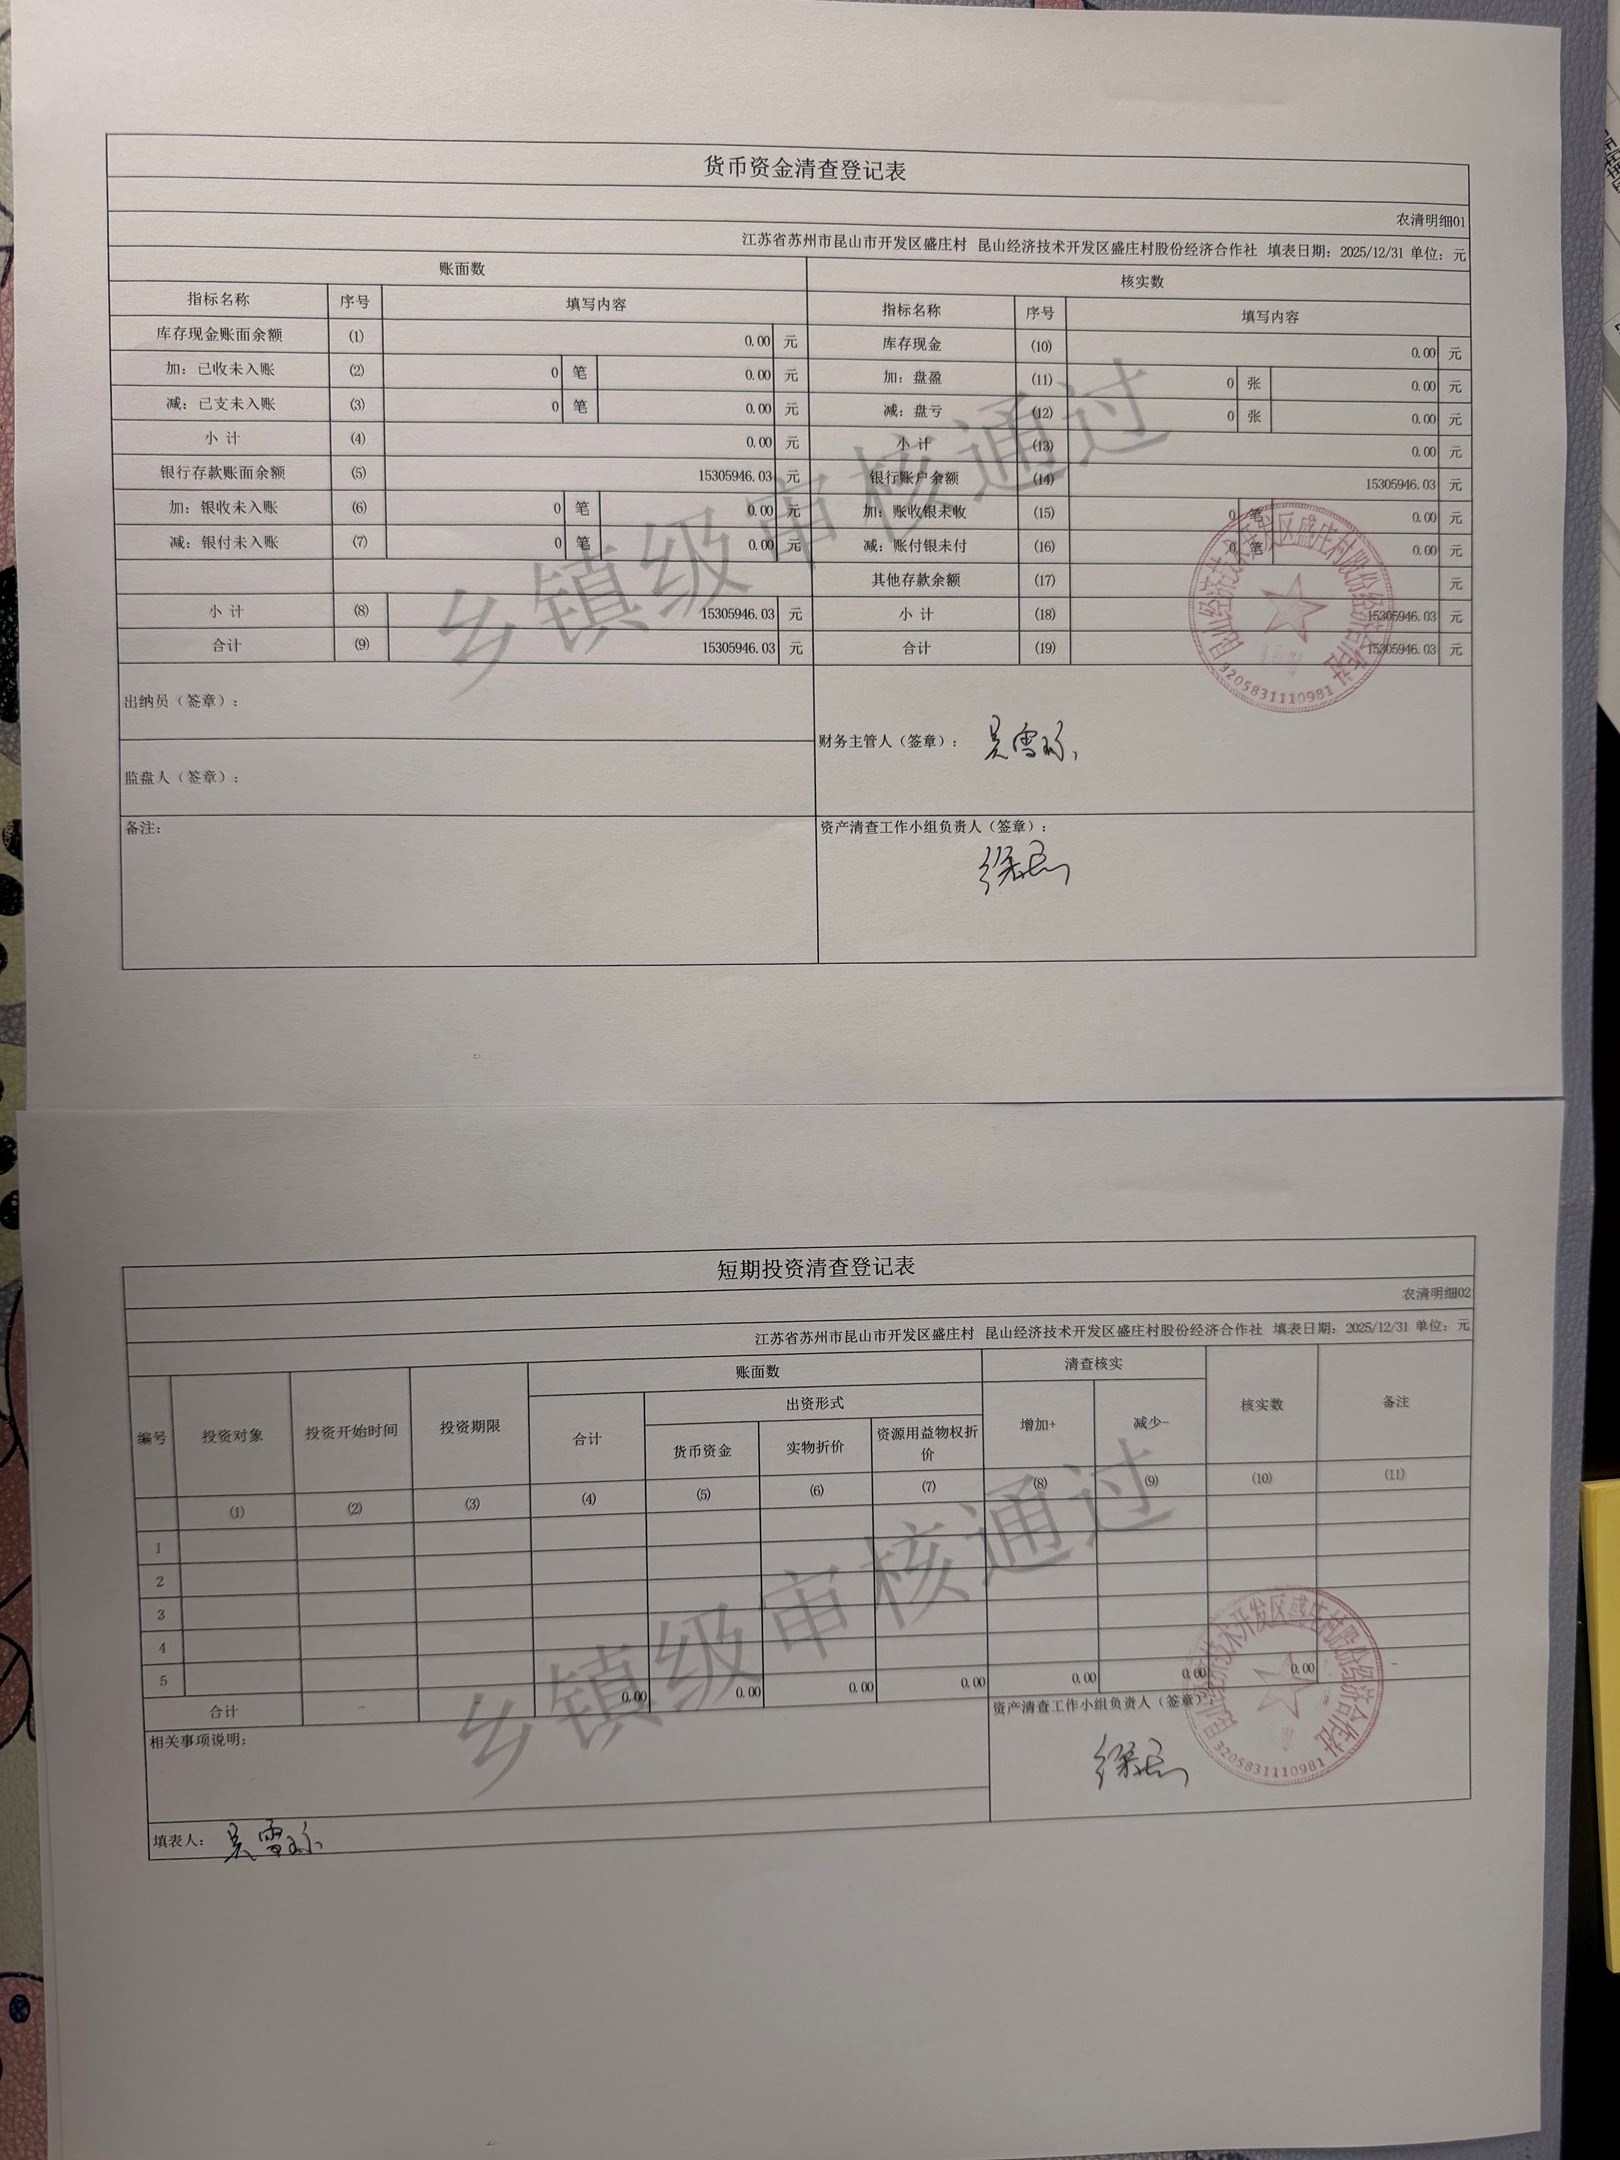 货币资金清查登记表
农清明细01
江苏省苏州市昆山市开发区盛庄村 昆山经济技术开发区盛庄村股份经济合作社 填表日期：2025/12/31 单位：元
账面数 核实数
指标名称 序号 填写内容 指标名称 序号 填写内容
库存现金账面余额 (1) 0.00 元 库存现金 (10) 0.00 元
加：已收未入账 (2) 0 笔 0.00 元 加：盘盈 (11) 0 张 0.00 元
减：已支未入账 (3) 0 笔 0.00 元 减：盘亏 (12) 0 张 0.00 元
小 计 (4) 0.00 元 小 计 (13) 0.00 元
银行存款账面余额 (5) 15305946.03 元 银行账户余额 (14) 15305946.03 元
加：银收未入账 (6) 0 笔 0.00 元 加：账收银未收 (15) 0 笔 0.00 元
减：银付未入账 (7) 0 笔 0.00 元 减：账付银未付 (16) 0 笔 0.00 元
其他存款余额 (17) 元
小 计 (8) 15305946.03 元 小 计 (18) 15305946.03 元
合计 (9) 15305946.03 元 合计 (19) 15305946.03 元
乡镇级审核通过
昆山经济技术开发区盛庄村股份经济合作社
3205831110981
出纳员（签章）：
财务主管人（签章）： 吴雪珍
监盘人（签章）：
备注： 资产清查工作小组负责人（签章）：
短期投资清查登记表
农清明细02
江苏省苏州市昆山市开发区盛庄村 昆山经济技术开发区盛庄村股份经济合作社 填表日期：2025/12/31 单位：元
编号 投资对象 投资开始时间 投资期限 账面数 清查核实 核实数 备注
合计 出资形式 增加+ 减少-
货币资金 实物折价 资源用益物权折价
(1) (2) (3) (4) (5) (6) (7) (8) (9) (10) (11)
1
2
3
4
5
合计 – 0.00 0.00 0.00 0.00 0.00 0.00 0.00 –
乡镇级审核通过
昆山经济技术开发区盛庄村股份经济合作社
3205831110981
相关事项说明： 资产清查工作小组负责人（签章）：
填表人： 吴雪珍